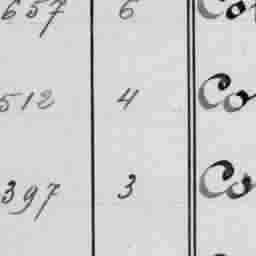 657 6 Co
512 4 Co
397 3 Co